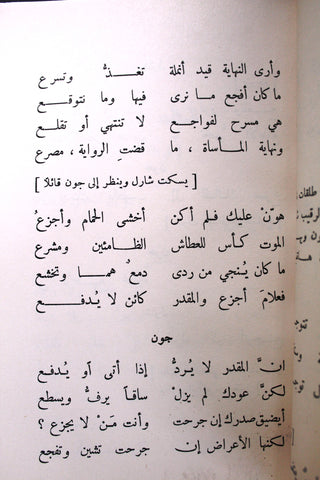 وأرى النهاية قيد أنملة تغذّ وتسرع
ما كان أفجع ما نرى فيها وما نتوقع
هي مسرح لفواجع لا تنتهي أو تقلع
ونهاية المأساة ، ما قضتِ الرواية ، مصرع
[ يسكت شارل وينظر إلى جون قائلاً ]
هوّنْ عليك فلم أكن أخشى الحمام وأجزعُ
الموت كأس للعطاش الظامئين ومشرع
ما كان يُنجي من ردى دمعٌ همـا وتخشع
فعلامَ أجزع والمقدر كائن لا يُدفع
جون
انَّ المقدر لا يُردُّ إذا أتى أو يُدفع
لكنَّ عودك لم يزلْ ساقاً يرفُّ ويسطع
أيضيق صدرك إن جرحت وأنت مَنْ لا يجزع ؟
لكنها الأعراض إن جرحت تشين وتفجع
طلقات